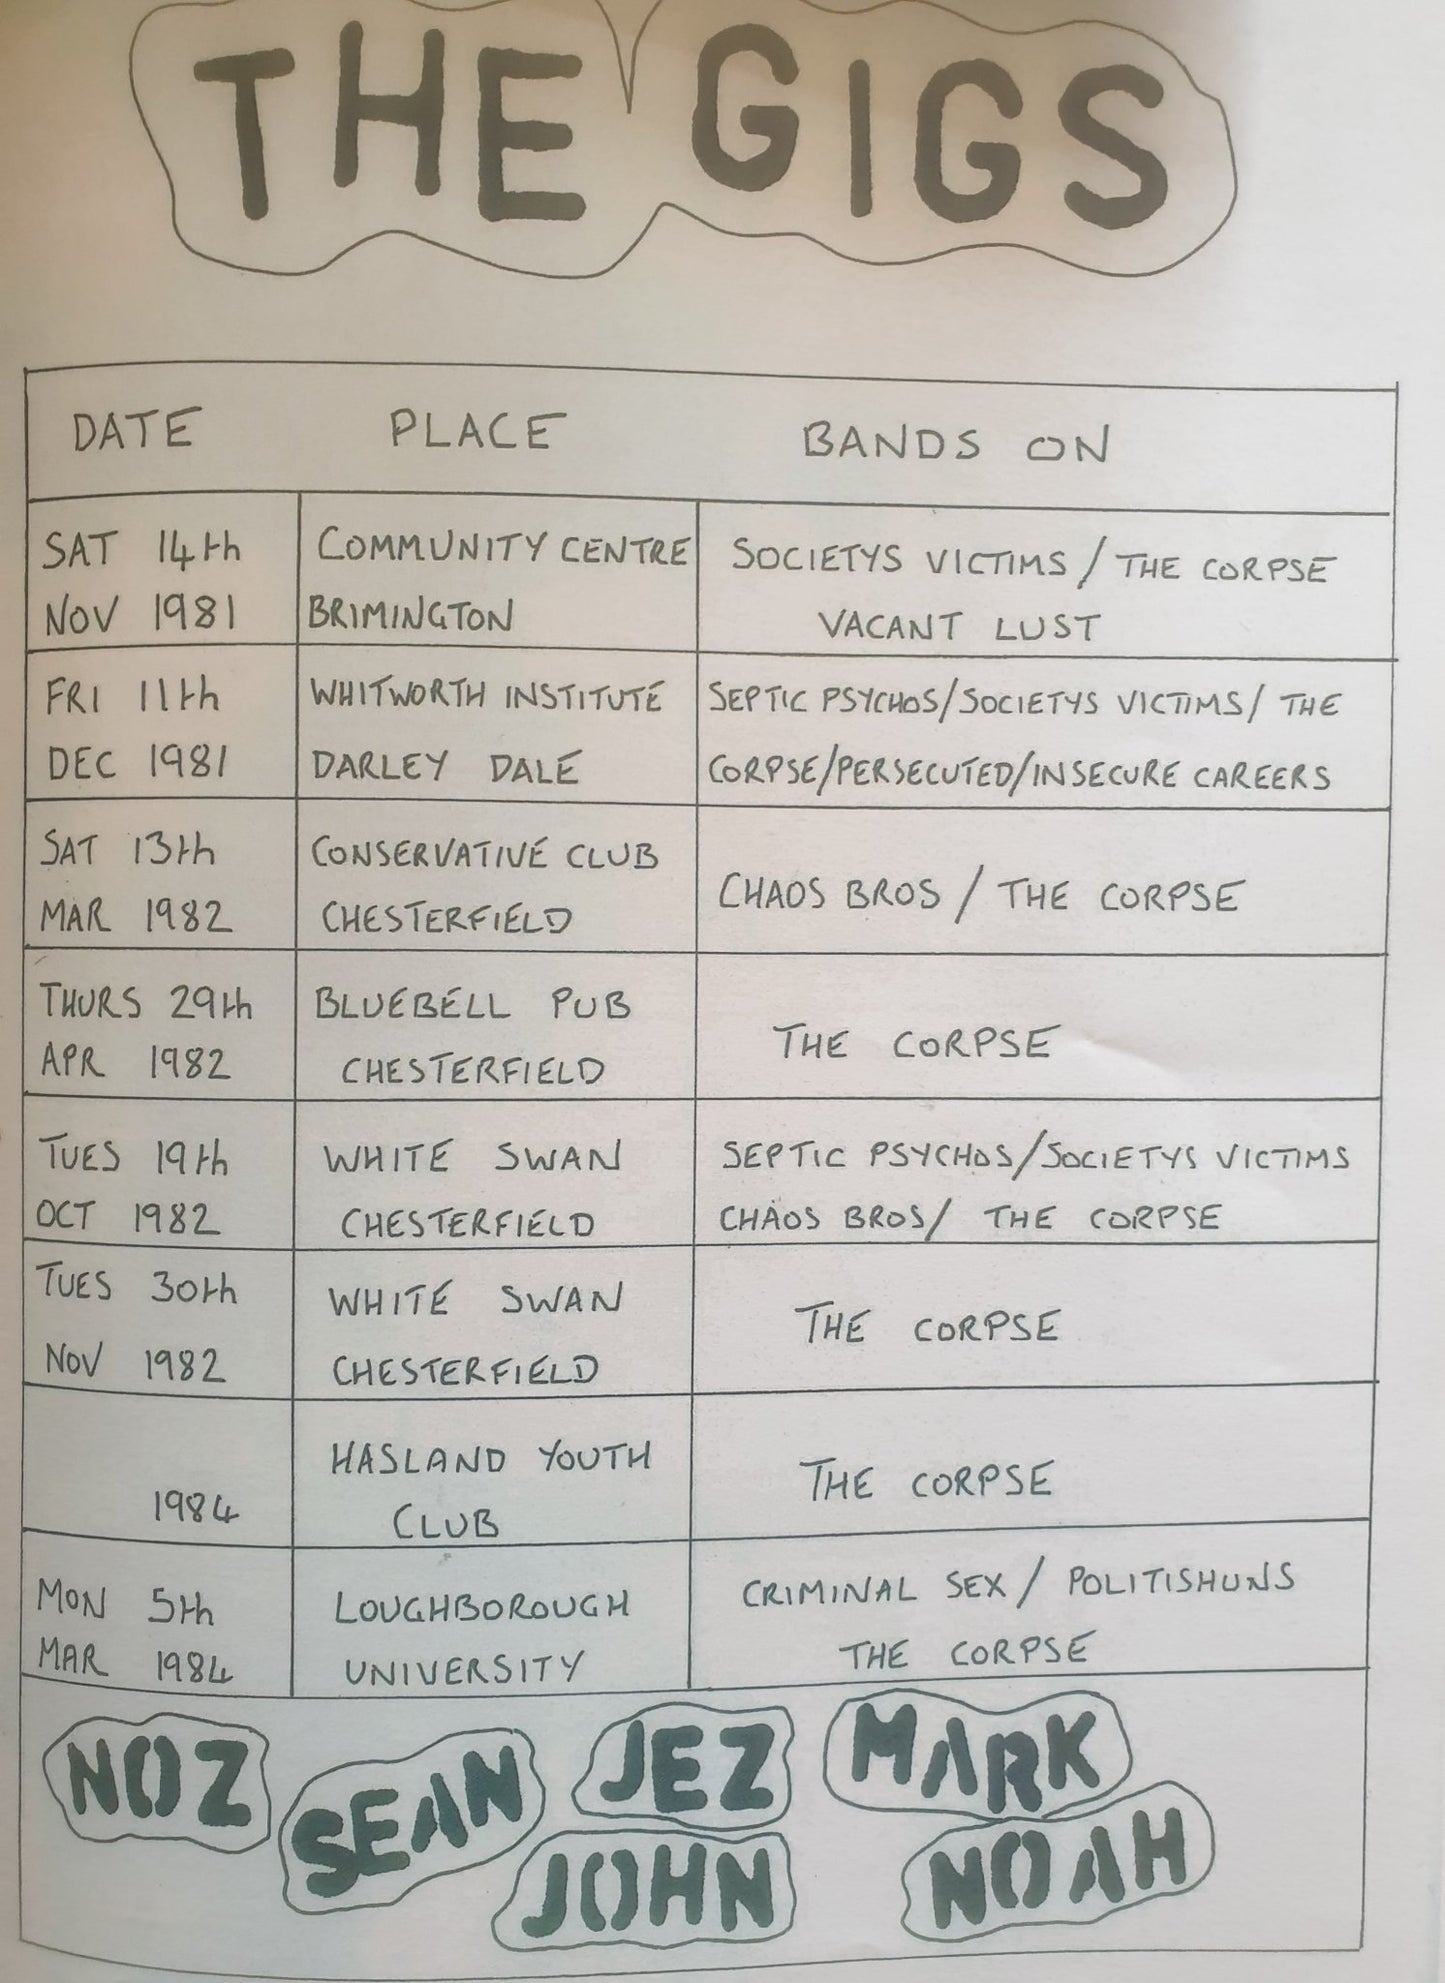 THE GIGS
DATE PLACE BANDS ON
SAT 14th COMMUNITY CENTRE SOCIETYS VICTIMS / THE CORPSE
NOV 1981 BRIMINGTON VACANT LUST
FRI 11th WHITWORTH INSTITUTE SEPTIC PSYCHOS/SOCIETYS VICTIMS/ THE
DEC 1981 DARLEY DALE CORPSE/PERSECUTED/INSECURE CAREERS
SAT 13th CONSERVATIVE CLUB
MAR 1982 CHESTERFIELD CHAOS BROS / THE CORPSE
THURS 29th BLUEBELL PUB
APR 1982 CHESTERFIELD THE CORPSE
TUES 19th WHITE SWAN SEPTIC PSYCHOS/SOCIETYS VICTIMS
OCT 1982 CHESTERFIELD CHAOS BROS/ THE CORPSE
TUES 30th WHITE SWAN
NOV 1982 CHESTERFIELD THE CORPSE
HASLAND YOUTH THE CORPSE
1984 CLUB
MON 5th LOUGHBOROUGH CRIMINAL SEX / POLITISHUNS
MAR 1984 UNIVERSITY THE CORPSE
NOZ SEAN JEZ MARK
JOHN NOAH